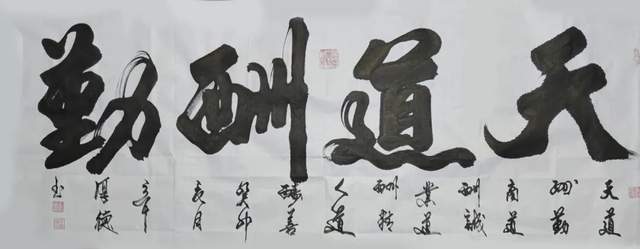 天道酬勤
天道
酬勤
商道
酬誠
業道
酬精
人道
酬善
癸卯
厚德